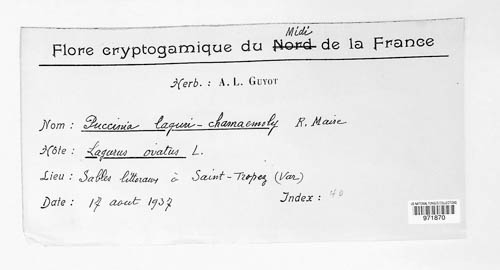 Midi
Flore cryptogamique du Nord de la France
Herb. : A. L. GUYOT
Nom : Puccinia laguri-chamaemoly R. Maire
Hôte : Lagurus ovatus L.
Lieu : Sables littoraux à Saint-Tropez (Var)
Date : 17 aout 1937 Index : 40
US NATIONAL FUNGUS COLLECTIONS
971870